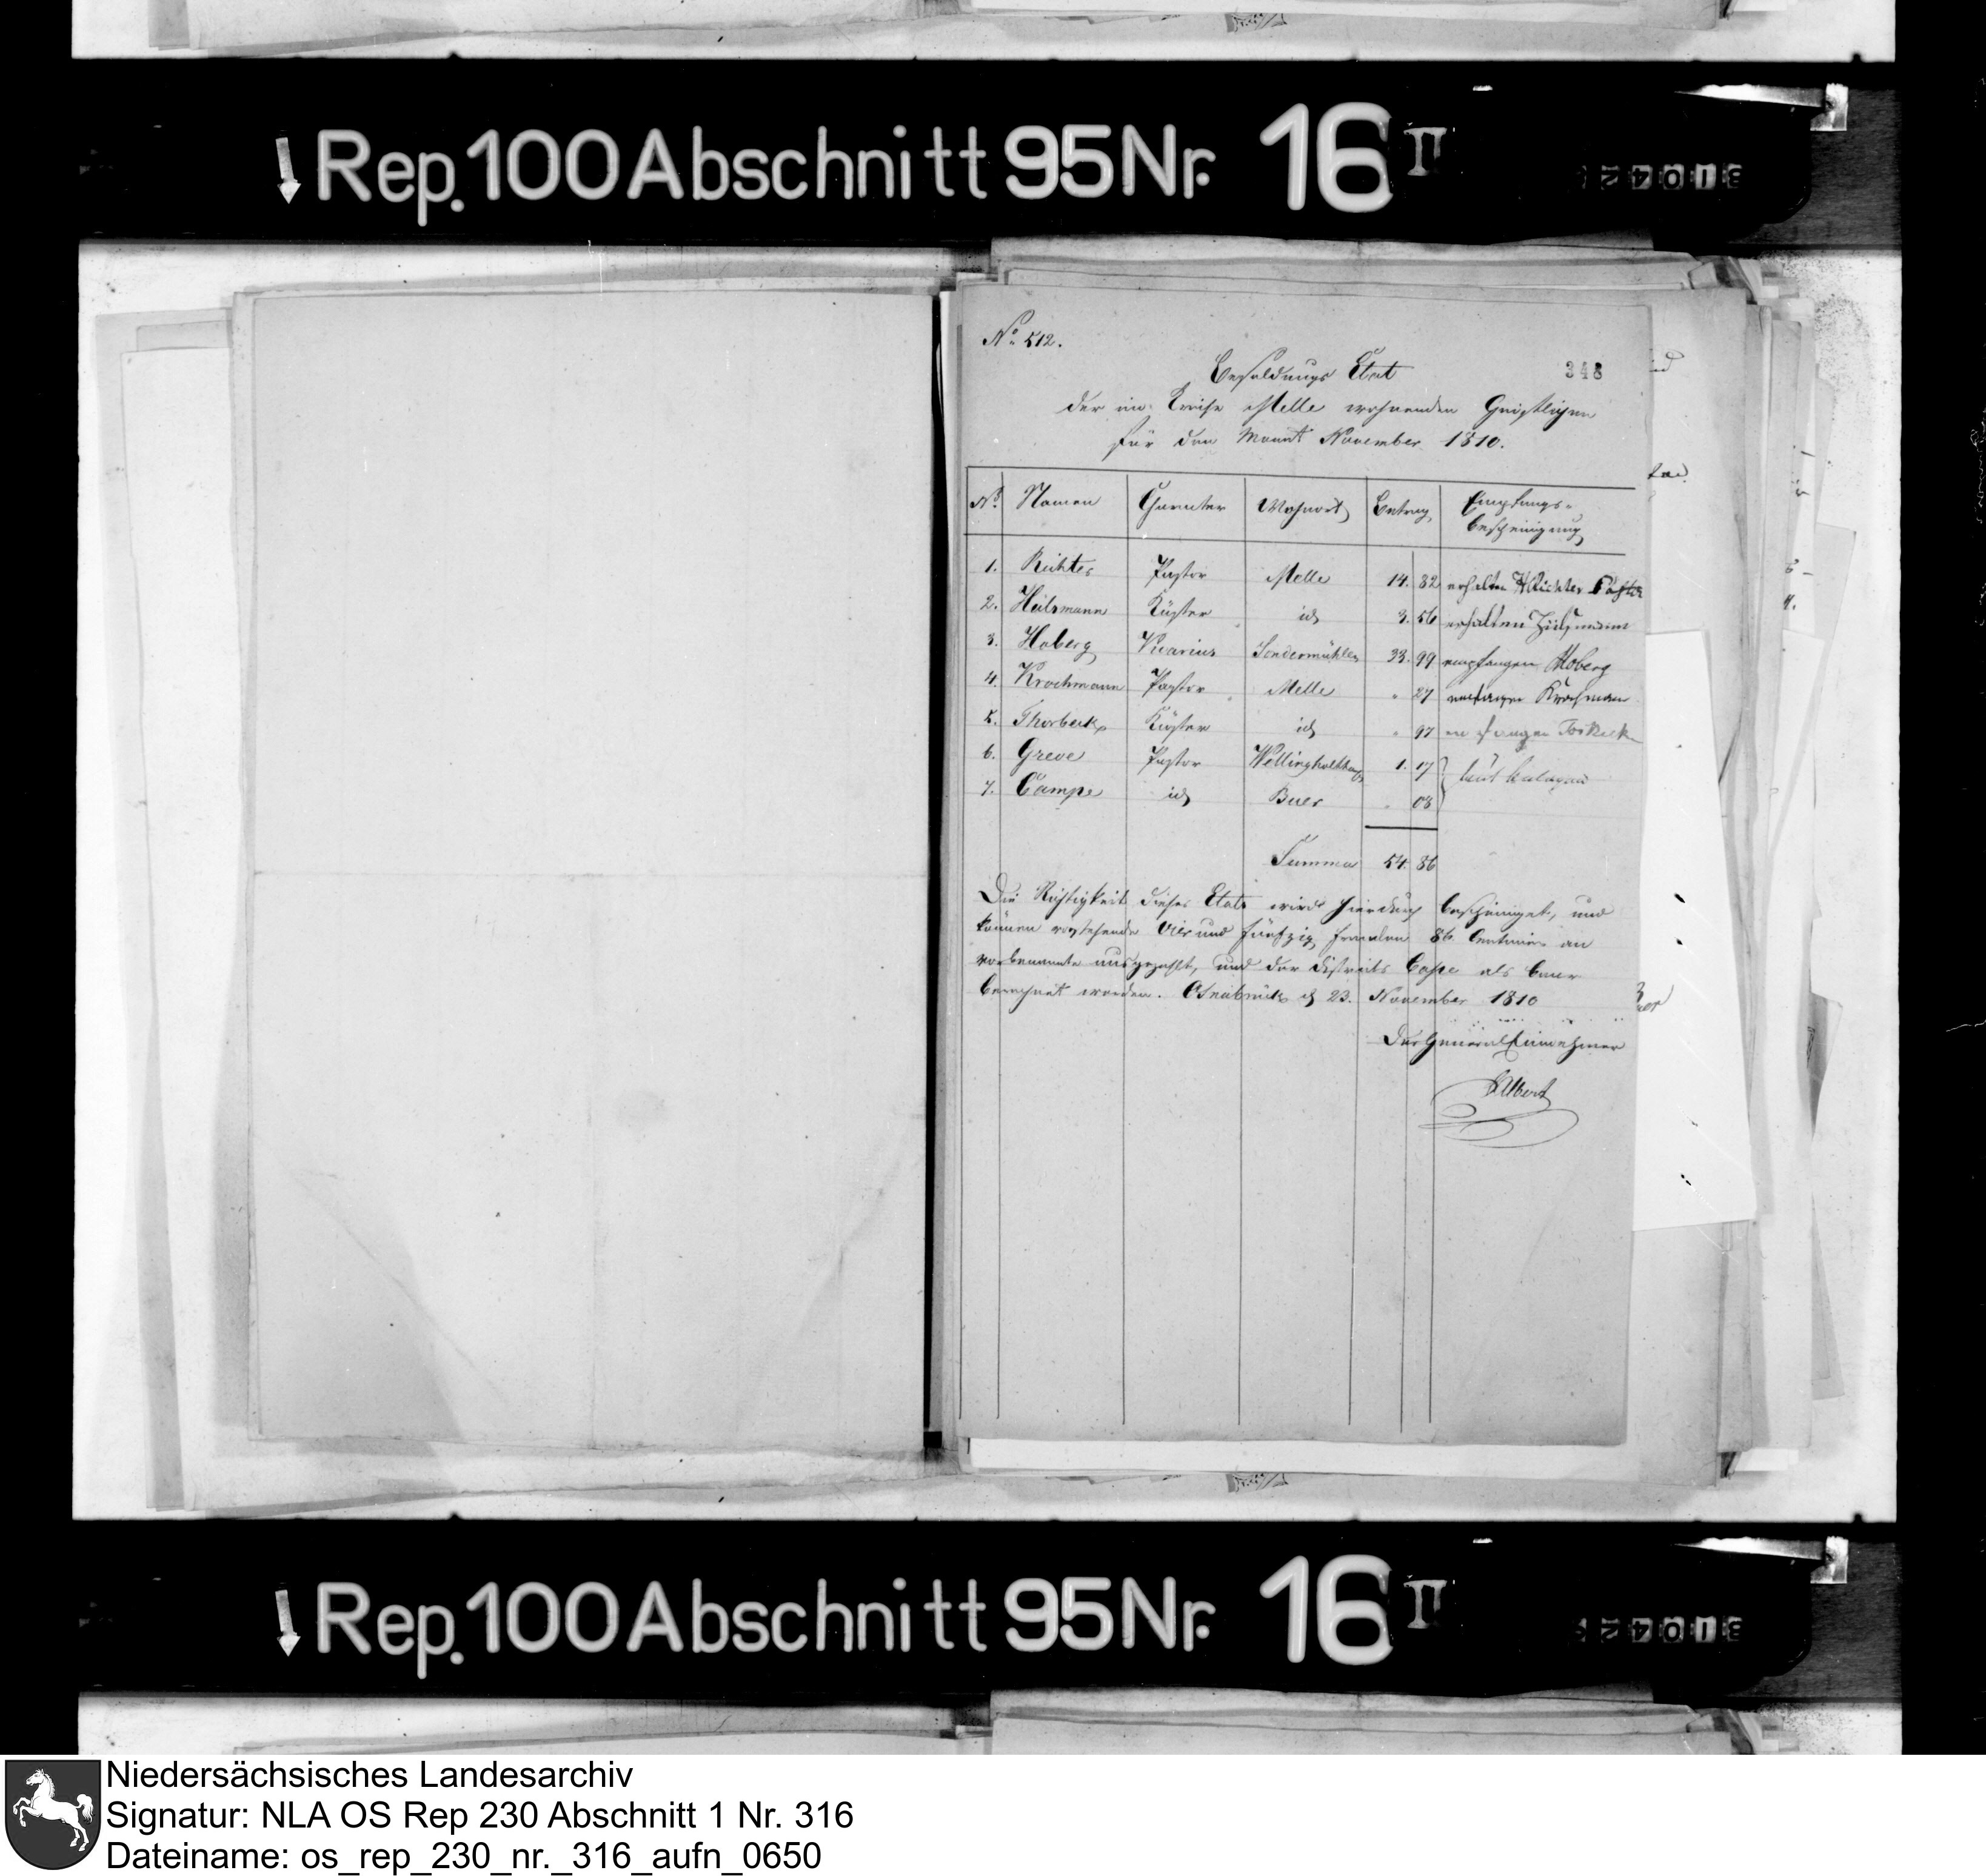 Rep. 100 Abschnitt 95 Nr. 16 II
No. 512.
348
Besoldungs Etat
der im Kreise Melle wohnenden Geistlichen
für den Monat November 1810.
No. Namen Charakter Wohnort Betrag Empfangs-
bescheinigung
1. Richter Pastor Melle 14. 82 erhalten Richter Pastor
2. Heilmann Küster id 3. 56 erhalten
3. Hoberg Vicarius Sondermühlen 33. 99 empfangen Hoberg
4. Krochmann Pastor Melle " 27 empfangen Krochmann
5. Thorbeck Küster id " 97 empfangen
6. Greve Pastor Wellingholthaus 1. 17
7. Campe id Buer " 08
Summa 54. 86
Die Richtigkeit dieses Etats wird hierdurch bescheiniget, und
können vorstehende Vier und fünfzig Franken 86 Centimen an
vorbenannte ausgezahlt, und der Districts Casse als baar
berechnet werden. Osnabrück d 23. November 1810
Der General Einnehmer
Albert
Rep. 100 Abschnitt 95 Nr. 16 II
Niedersächsisches Landesarchiv
Signatur: NLA OS Rep 230 Abschnitt 1 Nr. 316
Dateiname: os_rep_230_nr._316_aufn_0650